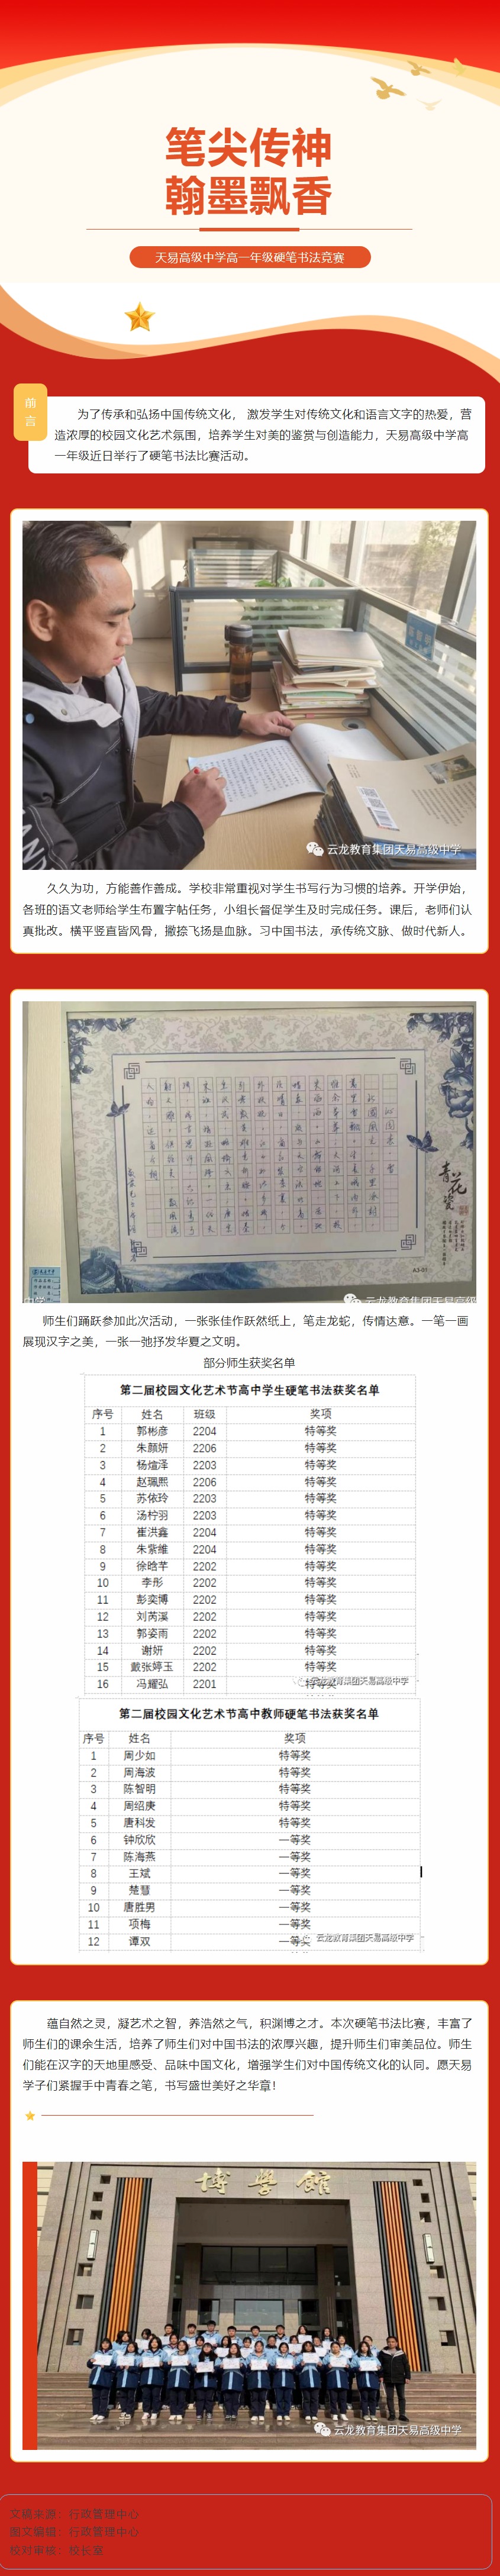 笔尖传神
翰墨飘香
天易高级中学高一年级硬笔书法竞赛
前
言
为了传承和弘扬中国传统文化， 激发学生对传统文化和语言文字的热爱，营
造浓厚的校园文化艺术氛围，培养学生对美的鉴赏与创造能力，天易高级中学高
一年级近日举行了硬笔书法比赛活动。
云龙教育集团天易高级中学
久久为功，方能善作善成。学校非常重视对学生书写行为习惯的培养。开学伊始，
各班的语文老师给学生布置字帖任务，小组长督促学生及时完成任务。课后，老师们认
真批改。横平竖直皆风骨，撇捺飞扬是血脉。习中国书法，承传统文脉、做时代新人。
青花瓷
A3-01
云龙教育集团天易高级
中学
师生们踊跃参加此次活动，一张张佳作跃然纸上，笔走龙蛇，传情达意。一笔一画
展现汉字之美，一张一弛抒发华夏之文明。
部分师生获奖名单
第二届校园文化艺术节高中学生硬笔书法获奖名单
序号 姓名 班级 奖项
1 郭彬彦 2204 特等奖
2 朱颜妍 2206 特等奖
3 杨煊泽 2203 特等奖
4 赵珮熙 2206 特等奖
5 苏依玲 2203 特等奖
6 汤柠羽 2203 特等奖
7 崔洪鑫 2204 特等奖
8 朱紫维 2204 特等奖
9 徐晗芊 2202 特等奖
10 李彤 2202 特等奖
11 彭奕博 2202 特等奖
12 刘芮溪 2202 特等奖
13 郭姿雨 2202 特等奖
14 谢妍 2202 特等奖
15 戴张婷玉 2202 特等奖
16 冯耀弘 2201 特等奖
云龙教育集团天易高级中学
第二届校园文化艺术节高中教师硬笔书法获奖名单
序号 姓名 奖项
1 周少如 特等奖
2 周海波 特等奖
3 陈智明 特等奖
4 周绍庚 特等奖
5 唐科发 特等奖
6 钟欣欣 一等奖
7 陈海燕 一等奖
8 王斌 一等奖
9 楚慧 一等奖
10 唐胜男 一等奖
11 项梅 一等奖
12 谭双 一等奖
云龙教育集团天易高级中学
蕴自然之灵，凝艺术之智，养浩然之气，积渊博之才。本次硬笔书法比赛，丰富了
师生们的课余生活，培养了师生们对中国书法的浓厚兴趣，提升师生们审美品位。师生
们能在汉字的天地里感受、品味中国文化，增强学生们对中国传统文化的认同。愿天易
学子们紧握手中青春之笔，书写盛世美好之华章！
博学馆
云龙教育集团天易高级中学
文稿来源：行政管理中心
图文编辑：行政管理中心
校对审核：校长室